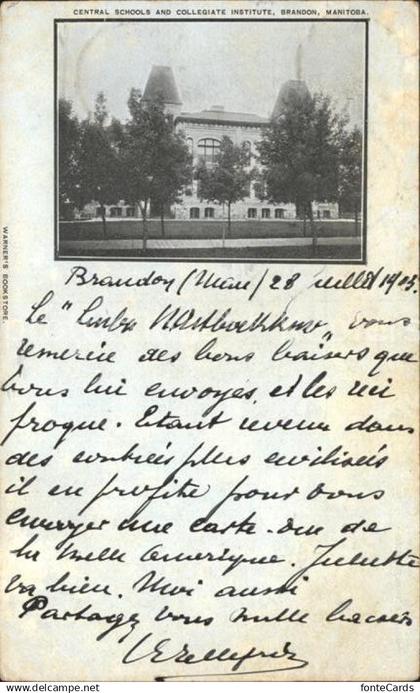 CENTRAL SCHOOLS AND COLLEGIATE INSTITUTE, BRANDON, MANITOBA.
WARNER'S BOOKSTORE.
Brandon (Man) 28 juillet 1905.
Le " vous
remercie des bons baisers que
vous lui envoyez, et les réci
proque. Etant revenu dans
des contrées plus civilisées
il en profite pour vous
envoyer une carte. vue de
la belle Amérique. Juliette
va bien. Moi aussi
Partagez vous mille baisers